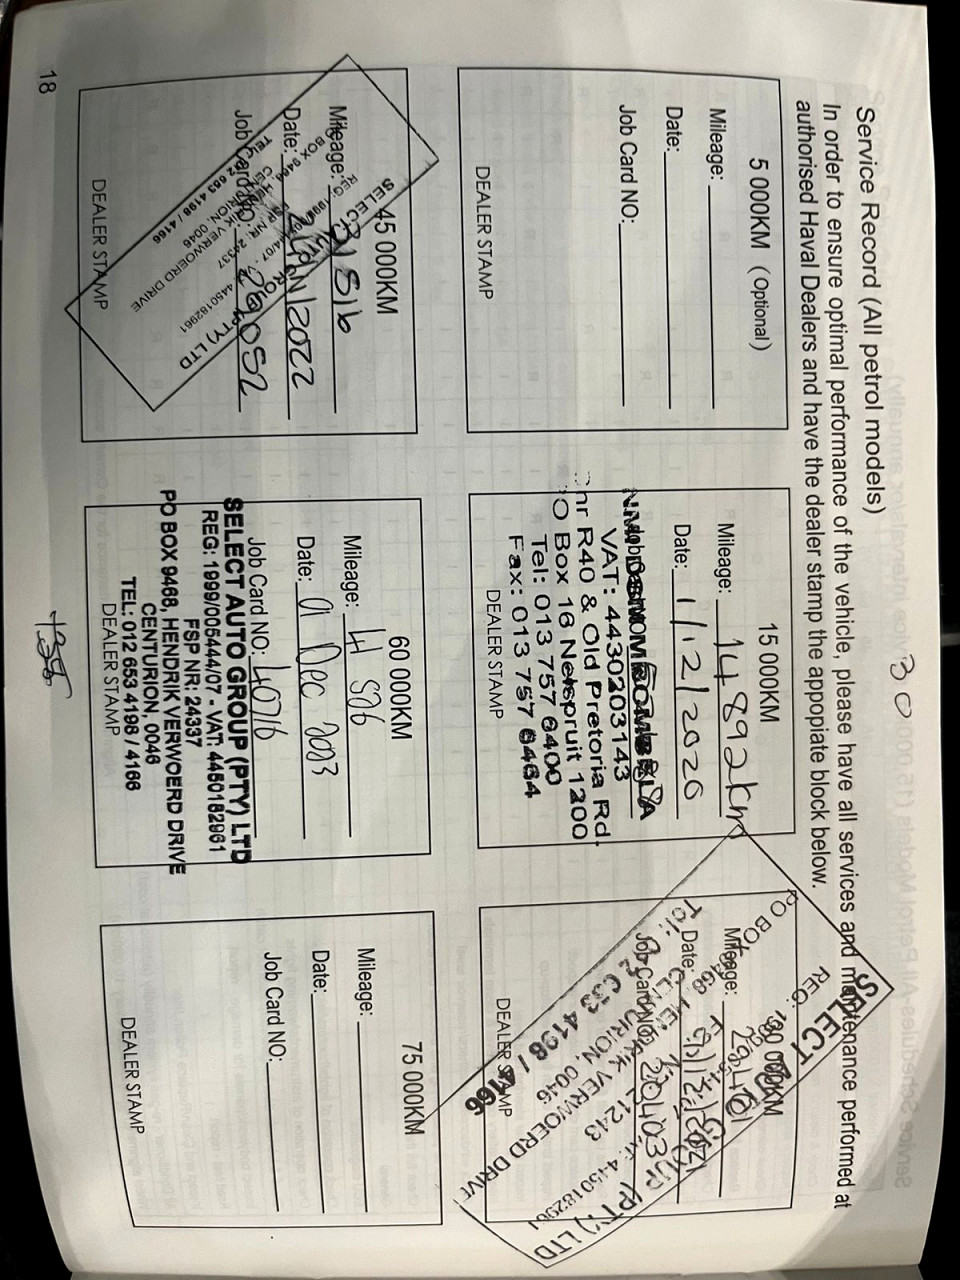 Service Record (All petrol models)
30
In order to ensure optimal performance of the vehicle, please have all services and maintenance performed at
authorised Haval Dealers and have the dealer stamp the appopiate block below.
5 000KM (Optional)
Mileage:
Date:
Job Card NO:
DEALER STAMP
15 000KM
Mileage: 14892km
Date: 1/12/2020
VAT: 4430203143
Cnr R40 & Old Pretoria Rd.
PO Box 16 Nelspruit 1200
Tel: 013 757 6400
Fax: 013 757 6464
DEALER STAMP
000KM
Mileage:
Date:
Job Card NO:
SELECT (PTY) LTD
REG:
VAT: 4450182961
PO BOX 9468, HENDRIK VERWOERD DRIVE
CENTURION, 0046
Tel: 012 653 4198 / 4166
DEALER STAMP
45 000KM
Mileage:
Date: 2022
Job Card NO:
SELECT (PTY) LTD
4450182961
PO BOX 9468, HENDRIK VERWOERD DRIVE
CENTURION, 0046
TEL: 012 653 4198 / 4166
DEALER STAMP
60 000KM
Mileage:
Date: 01 Dec
Job Card NO: 40716
SELECT AUTO GROUP (PTY) LTD
REG: 1999/005444/07 - VAT: 4450182961
FSP NR: 24337
PO BOX 9468, HENDRIK VERWOERD DRIVE
CENTURION, 0046
TEL: 012 653 4198 / 4166
DEALER STAMP
75 000KM
Mileage:
Date:
Job Card NO:
DEALER STAMP
18